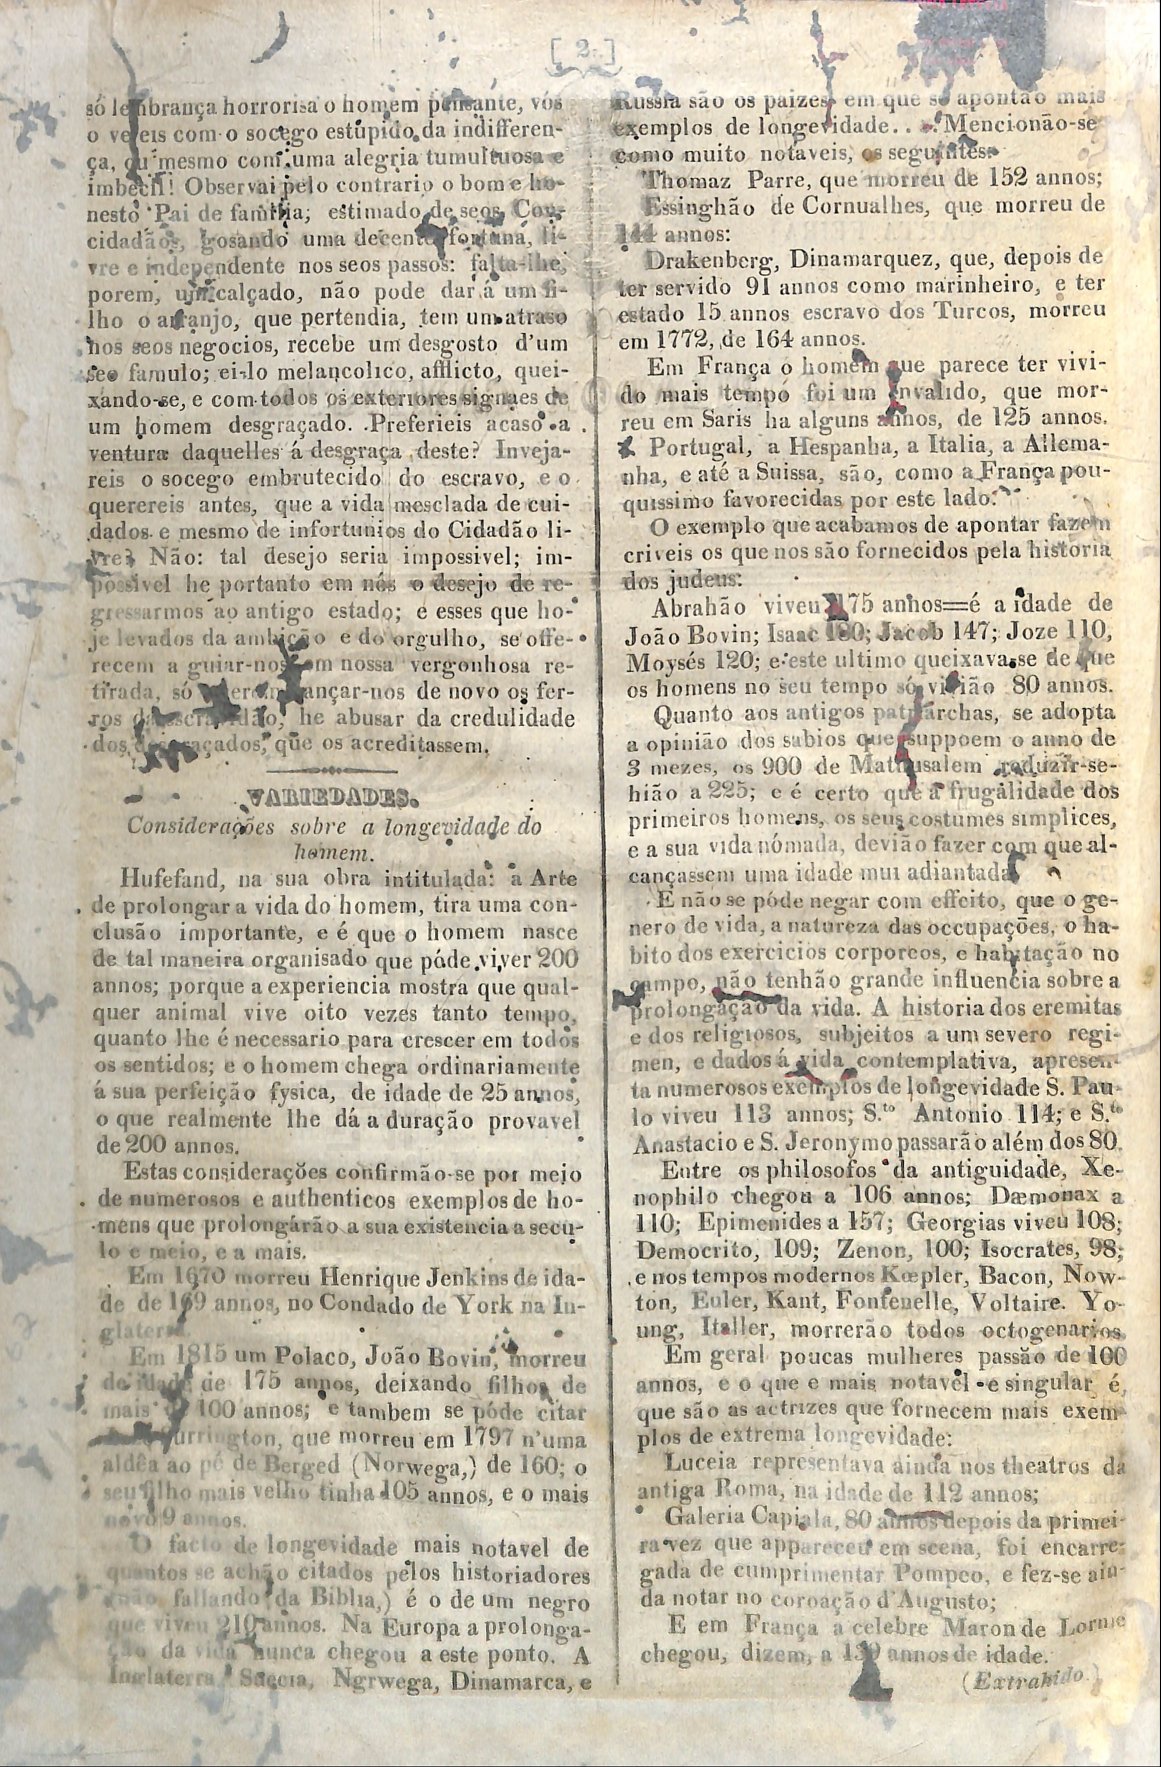 [ 2. ]
só lembrança horrorisa o homem pensante, vós
o vereis com o socego estupido da indifferen-
ça, ou mesmo com uma alegria tumultuosa e
imbecil! Observai pelo contrario o bom e ho-
nesto Pai de familia; estimado de seos Con-
cidadãos, gosando uma decente fortuna, li-
vre e independente nos seos passos: falta-lhe,
porem, um calçado, não pode dar á um fi-
lho o arranjo, que pertendia, tem um atraso
nos seos negocios, recebe um desgosto d'um
seo famulo; ei-lo melancolico, afflicto, quei-
xando-se, e com todos os exteriores signaes de
um homem desgraçado. Preferieis acaso a
ventura daquelles á desgraça deste? Inveja-
reis o socego embrutecido do escravo, e o
querereis antes, que a vida mesclada de cui-
dados e mesmo de infortunios do Cidadão li-
vre? Não: tal desejo seria impossivel; im-
possivel he portanto em nós o desejo de re-
gressarmos ao antigo estado; e esses que ho-
je levados da ambição e do orgulho, se offe-
recem a guiar-nos em nossa vergonhosa re-
tirada, só lançar-nos de novo os fer-
ros da escravidão, he abusar da credulidade
dos desgraçados, que os acreditassem.
VARIEDADES.
Considerações sobre a longevidade do
homem.
Hufefand, na sua obra intitulada: a Arte
de prolongar a vida do homem, tira uma con-
clusão importante, e é que o homem nasce
de tal maneira organisado que póde viver 200
annos; porque a experiencia mostra que qual-
quer animal vive oito vezes tanto tempo,
quanto lhe é necessario para crescer em todos
os sentidos; e o homem chega ordinariamente
á sua perfeição fysica, de idade de 25 annos,
o que realmente lhe dá a duração provavel
de 200 annos.
Estas considerações confirmão-se por meio
de numerosos e authenticos exemplos de ho-
mens que prolongárão a sua existencia a secu-
lo e meio, e a mais.
Em 1670 morreu Henrique Jenkins de ida-
de de 169 annos, no Condado de York na In-
glaterra.
Em 1815 um Polaco, João Bovin, morreu
de idade de 175 annos, deixando filhos de
mais de 100 annos; e tambem se póde citar
Surrington, que morreu em 1797 n'uma
aldêa ao pé de Berged (Norwega,) de 160; o
seu filho mais velho tinha 105 annos, e o mais
novo 9 annos.
O facto de longevidade mais notavel de
quantos se achão citados pelos historiadores
(não fallando da Biblia,) é o de um negro
que viveu 210 annos. Na Europa a prolonga-
ção da vida nunca chegou a este ponto. A
Inglaterra Suecia, Ngrwega, Dinamarca, e
Russia são os paizes em que se apontão mais
exemplos de longevidade... Mencionão-se
como muito notaveis, os seguintes:
Thomaz Parre, que morreu de 152 annos;
Essinghão de Cornualhes, que morreu de
144 annos:
Drakenberg, Dinamarquez, que, depois de
ter servido 91 annos como marinheiro, e ter
estado 15 annos escravo dos Turcos, morreu
em 1772, de 164 annos.
Em França o homem que parece ter vivi-
do mais tempo foi um Invalido, que mor-
reu em Saris ha alguns annos, de 125 annos.
Portugal, a Hespanha, a Italia, a Allema-
nha, e até a Suissa, são, como a França pou-
quissimo favorecidas por este lado.
O exemplo que acabamos de apontar fazem
criveis os que nos são fornecidos pela historia
dos judeus:
Abrahão viveu 175 annos=é a idade de
João Bovin; Isaac 180; Jacob 147; Joze 110,
Moysés 120; e este ultimo queixava-se de que
os homens no seu tempo só vivião 80 annos.
Quanto aos antigos patriarchas, se adopta
a opinião dos sabios que suppoem o anno de
3 mezes, os 900 de Mathusalem reduzir-se-
hião a 225; e é certo que a frugalidade dos
primeiros homens, os seus costumes simplices,
e a sua vida nómada, devião fazer com que al-
cançassem uma idade mui adiantada.
E não se póde negar com effeito, que o ge-
nero de vida, a natureza das occupações, o ha-
bito dos exercicios corporeos, e habitação no
campo, não tenhão grande influencia sobre a
prolongação da vida. A historia dos eremitas
e dos religiosos, subjeitos a um severo regi-
men, e dados á vida contemplativa, apresen-
ta numerosos exemplos de longevidade S. Pau-
lo viveu 113 annos; S.to Antonio 114; e S.to
Anastacio e S. Jeronymo passarão além dos 80.
Entre os philosofos da antiguidade, Xe-
nophilo chegou a 106 annos; Dæmonax a
110; Epimenides a 157; Georgias viveu 108;
Democrito, 109; Zenon, 100; Isocrates, 98;
e nos tempos modernos Kœpler, Bacon, Now-
ton, Euler, Kant, Fontenelle, Voltaire. Yo-
ung, Italler, morrerão todos octogenarios
Em geral poucas mulheres passão de 100
annos, e o que e mais notavel e singular é,
que são as actrizes que fornecem mais exem-
plos de extrema longevidade:
Luceia representava ainda nos theatros da
antiga Roma, na idade de 112 annos;
Galeria Capiala, 80 annos depois da primei-
ra vez que appareceu em scena, foi encarre-
gada de cumprimentar Pompeo, e fez-se ain-
da notar no coroação d'Augusto;
E em França a celebre Maron de Lorme
chegou, dizem, a 139 annos de idade.
(Extrahido.)